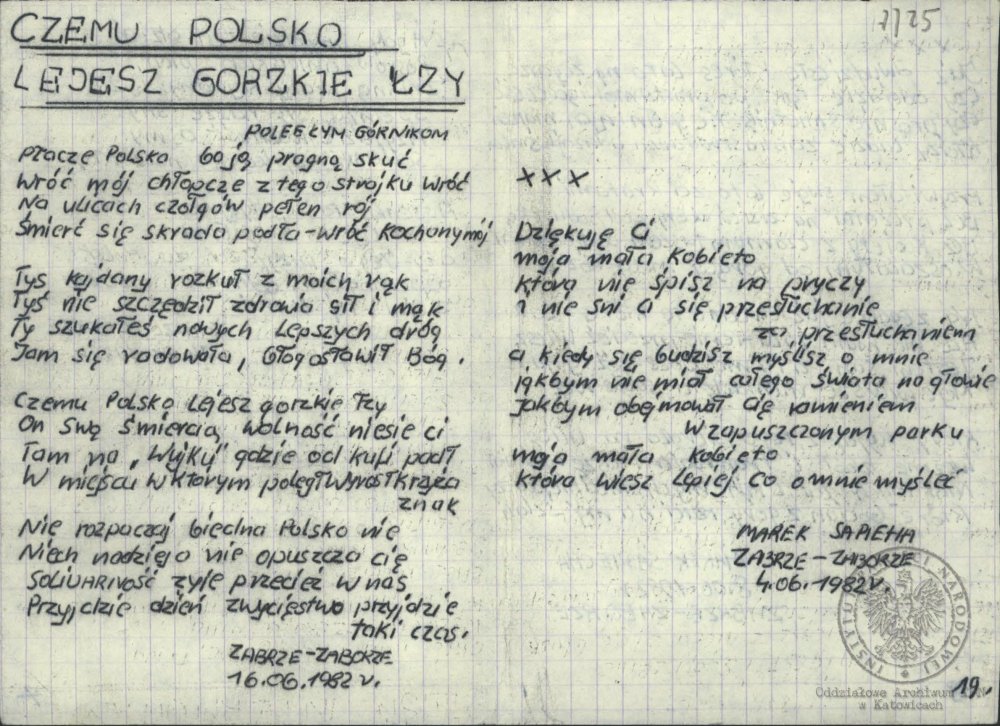 7/25
CZEMU POLSKO
LEJESZ GORZKIE ŁZY
POLEGŁYM GÓRNIKOM
Płacze Polska bo ją pragną skuć
Wróć mój chłopcze z tego strajku wróć
Na ulicach czołgów pełen rój
Śmierć się skrada podła - wróć kochany mój
Tyś kajdany rozkuł z moich rąk
Tyś nie szczędził zdrowia sił i mąk
Ty szukałeś nowych lepszych dróg
Jam się radowała, błogosławił Bóg.
Czemu Polsko lejesz gorzkie łzy
On swą śmiercią wolność niesie ci
Tam na „Wujku" gdzie od kuli padł
W miejscu w którym poległ wyrósł krzyża
znak
Nie rozpaczaj biedna Polsko nie
Niech nadzieja nie opuszcza cię
SOLIDARNOŚĆ żyje przecież w nas
Przyjdzie dzień zwycięstwa przyjdzie
taki czas.
ZABRZE-ZABORZE
16.06.1982 r.
x x x
Dziękuję Ci
moja mała kobieto
która nie śpisz na pryczy
i nie śni ci się przesłuchanie
za przesłuchaniem
a kiedy się budzisz myślisz o mnie
jakbym nie miał całego świata na głowie
jakbym obejmował cię ramieniem
w zapuszczonym parku
moja mała kobieto
która wiesz lepiej co o mnie myśleć
MAREK SAPIEHA
ZABRZE-ZABORZE
4.06.1982 r.
INSTYTUT PAMIĘCI NARODOWEJ
Oddziałowe Archiwum IPN
w Katowicach
19.